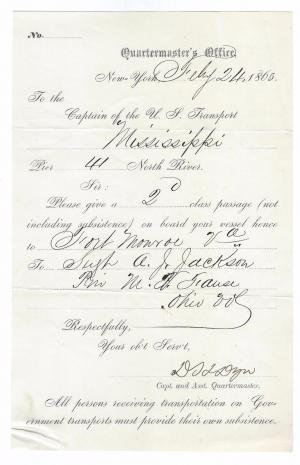 No.
Quartermaster's Office,
New-York, Feby 24 1865.
To the
Captain of the U. S. Transport
Mississippi
Pier 41 North River.
Sir:
Please give a 2d class passage (not
including subsistence) on board your vessel hence
to Fort Monroe Va
To A. J. Jackson
M.
Ohio Vol
Respectfully,
Your ob't Serv't,
Capt. and Asst. Quartermaster.
All persons receiving transportation on Gov-
ernment transports must provide their own subsistence.